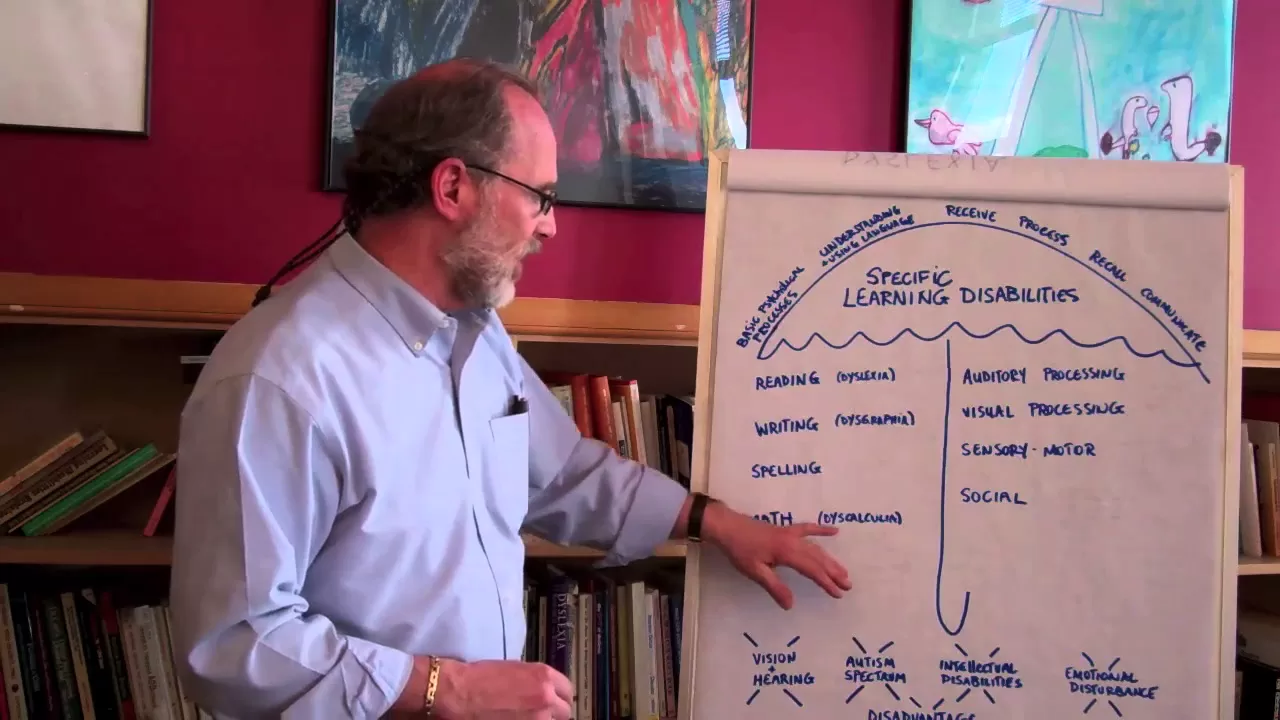 DYSLEXIA
BASIC PSYCHOLOGICAL
PROCESSES
UNDERSTANDING
+ USING LANGUAGE
RECEIVE PROCESS RECALL COMMUNICATE
SPECIFIC
LEARNING DISABILITIES
READING (DYSLEXIA)
WRITING (DYSGRAPHIA)
SPELLING
MATH (DYSCALCULIA)
AUDITORY PROCESSING
VISUAL PROCESSING
SENSORY-MOTOR
SOCIAL
VISION
+
HEARING
AUTISM
SPECTRUM
INTELLECTUAL
DISABILITIES
EMOTIONAL
DISTURBANCE
DISADVANTAGE
DYSLEXIA